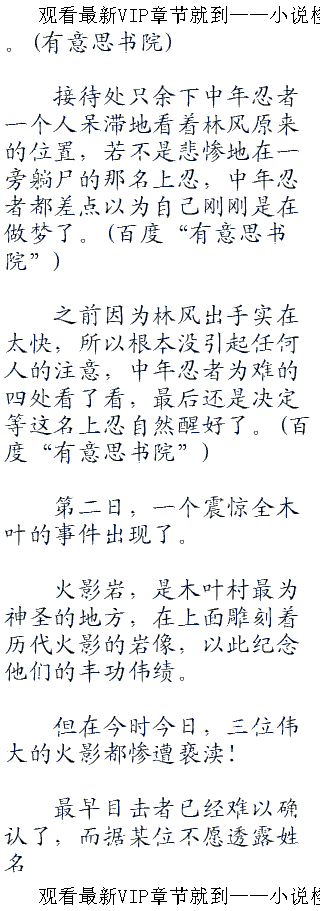 观看最新VIP章节就到——小说
。(有意思书院)
接待处只余下中年忍者
一个人呆滞地看着林风原来
的位置，若不是悲惨地在一
旁躺尸的那名上忍，中年忍
者都差点以为自己刚刚是在
做梦了。(百度“有意思书
院”)
之前因为林风出手实在
太快，所以根本没引起任何
人的注意，中年忍者为难的
四处看了看，最后还是决定
等这名上忍自然醒好了。(百
度“有意思书院”)
第二日，一个震惊全木
叶的事件出现了。
火影岩，是木叶村最为
神圣的地方，在上面雕刻着
历代火影的岩像，以此纪念
他们的丰功伟绩。
但在今时今日，三位伟
大的火影都惨遭亵渎！
最早目击者已经难以确
认了，而据某位不愿透露姓
名
观看最新VIP章节就到——小说